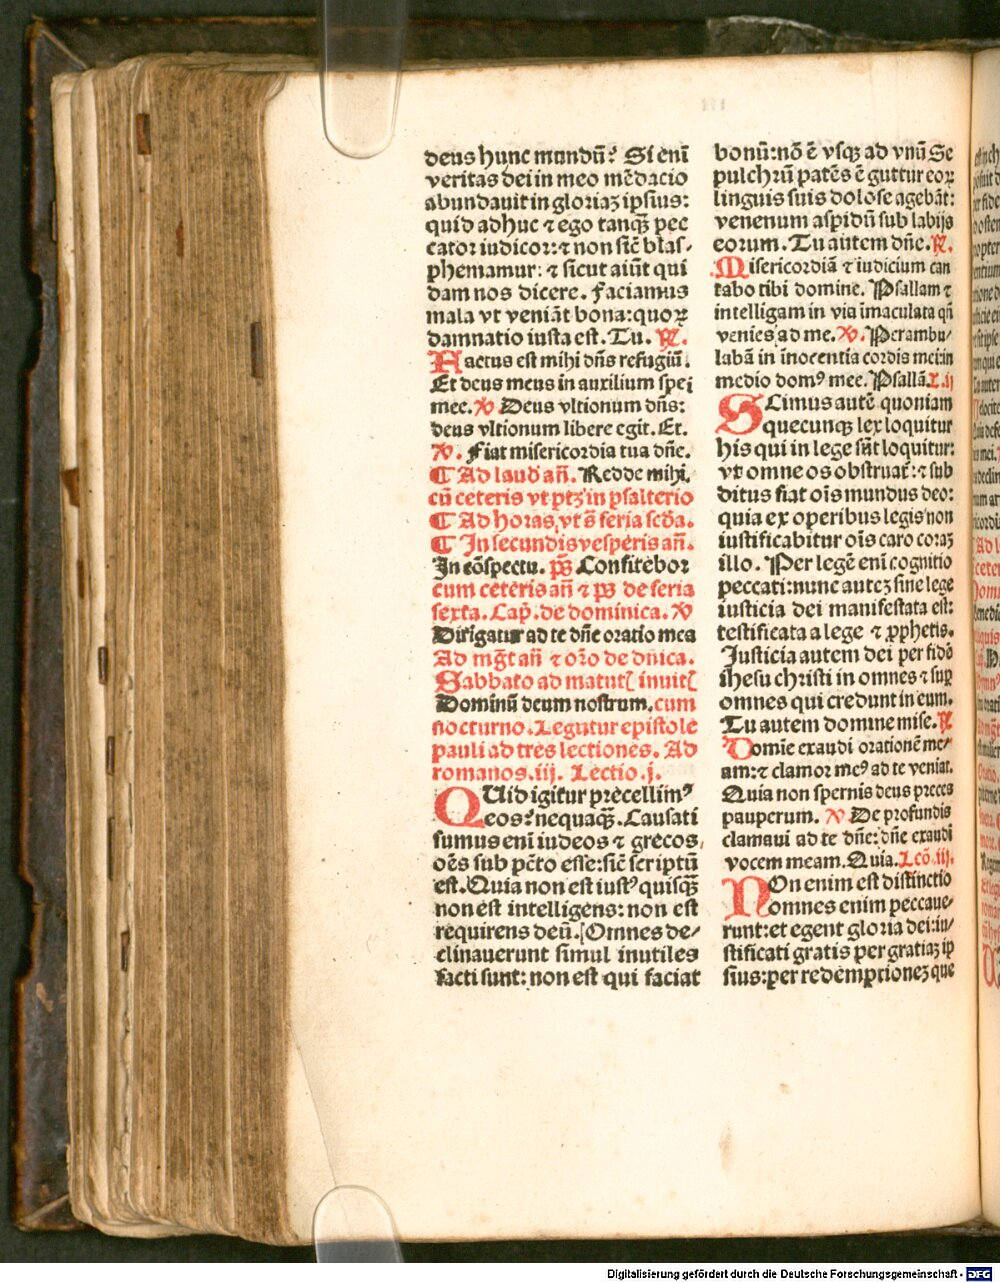 deus hunc mundū? Si enī
veritas dei in meo mēdacio
abundauit in gloriaꝫ ipsius:
quid adhuc ⁊ ego tanqꝫ pec
cator iudicor: ⁊ non sic̄ blas-
phemamur: ⁊ sicut aiūt qui
dam nos dicere. faciamus
mala vt veniāt bona: quoꝝ
damnatio iusta est. Tu. ℟.
Factus est mihi dn̄s refugiū.
Et deus meus in auxilium spei
mee. ℣ Deus vltionum dn̄s:
deus vltionum libere egit. Et.
℣. Fiat misericordia tua dn̄e.
¶ Ad laud̄ an̄. Redde mihi.
cū ceteris vt ptꝫ in psalterio
¶ Ad horas, vt s̄ feria scd̄a.
¶ In secundis vesperis an̄.
In cōspectu. p̄s Confitebor
cum ceteris an̄ ⁊ p̄s de feria
sexta. Cap̄. de dominica. ℣
Dirigatur ad te dn̄e oratio mea
Ad mḡt an̄ ⁊ or̄o de dn̄ica.
Sabbato ad matut̄ inuit̄
Dominū deum nostrum. cum
nocturno. Legūtur epistole
pauli ad tres lectiones. Ad
romanos. iij. Lectio. j.
QUid igitur precellimꝰ
eos? nequaqꝫ. Causati
sumus enī iudeos ⁊ grecos,
oēs sub pct̄o esse: sic̄ scriptū
est. Quia non est iustꝰ quisqꝫ
non est intelligens: non est
requirens deū. Omnes de-
clinauerunt simul inutiles
facti sunt: non est qui faciat
bonū: nō ē vsqꝫ ad vnū Se
pulchrū patēs ē guttur eoꝝ
linguis suis dolose agebāt:
venenum aspidū sub labijs
eorum. Tu autem dn̄e. ℟.
Misericordiā ⁊ iudicium can
tabo tibi domine. Psallam ⁊
intelligam in via īmaculata qn̄
venies ad me. ℣. Perambu-
labā in inocentia cordis mei: in
medio domꝰ mee. Psallā. L. ij
SCimus autē quoniam
quecunqꝫ lex loquitur
his qui in lege sūt loquitur:
vt omne os obstruat᷑: ⁊ sub
ditus fiat oīs mundus deo:
quia ex operibus legis non
iustificabitur oīs caro coraꝫ
illo. Per legē enī cognitio
peccati: nunc auteꝫ sine lege
iusticia dei manifestata est:
testificata a lege ⁊ ꝓphetis.
Iusticia autem dei per fidē
ihesu christi in omnes ⁊ sup̄
omnes qui credunt in eum.
Tu autem domine mise. ℟
Domīe exaudi orationē me-
am: ⁊ clamor meꝰ ad te veniat.
Quia non spernis deus preces
pauperum. ℣ De profundis
clamaui ad te dn̄e: dn̄e exaudi
vocem meam. Quia. Lcō. iij.
NOn enim est distinctio
omnes enim peccaue-
runt: et egent gloria dei: iu-
stificati gratis per gratiaꝫ ip
sius: per redemptioneꝫ que
Digitalisierung gefördert durch die Deutsche Forschungsgemeinschaft - DFG